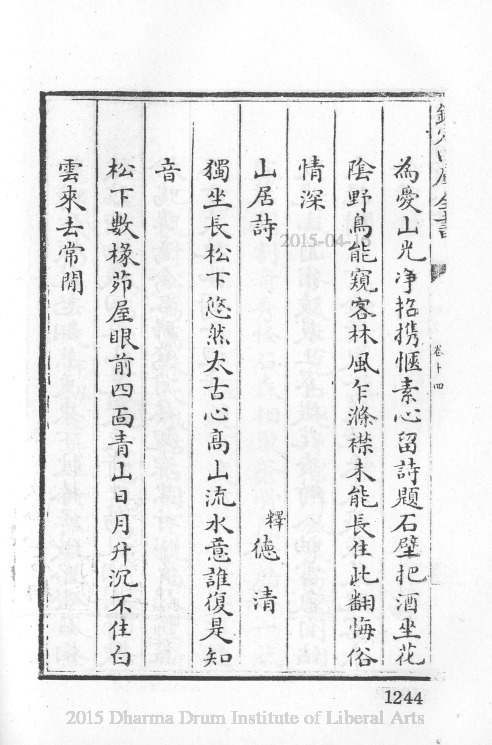 欽定四庫全書
卷十四
為愛山光净招携愜素心留詩題石壁把酒坐花
陰野鳥能窺客林風乍滌襟未能長住此翻悔俗
情深
山居詩
釋德清
獨坐長松下悠然太古心高山流水意誰復是知
音
松下數椽茆屋眼前四面青山日月升沉不住白
雲來去常閒
2015-04-16
1244
2015 Dharma Drum Institute of Liberal Arts